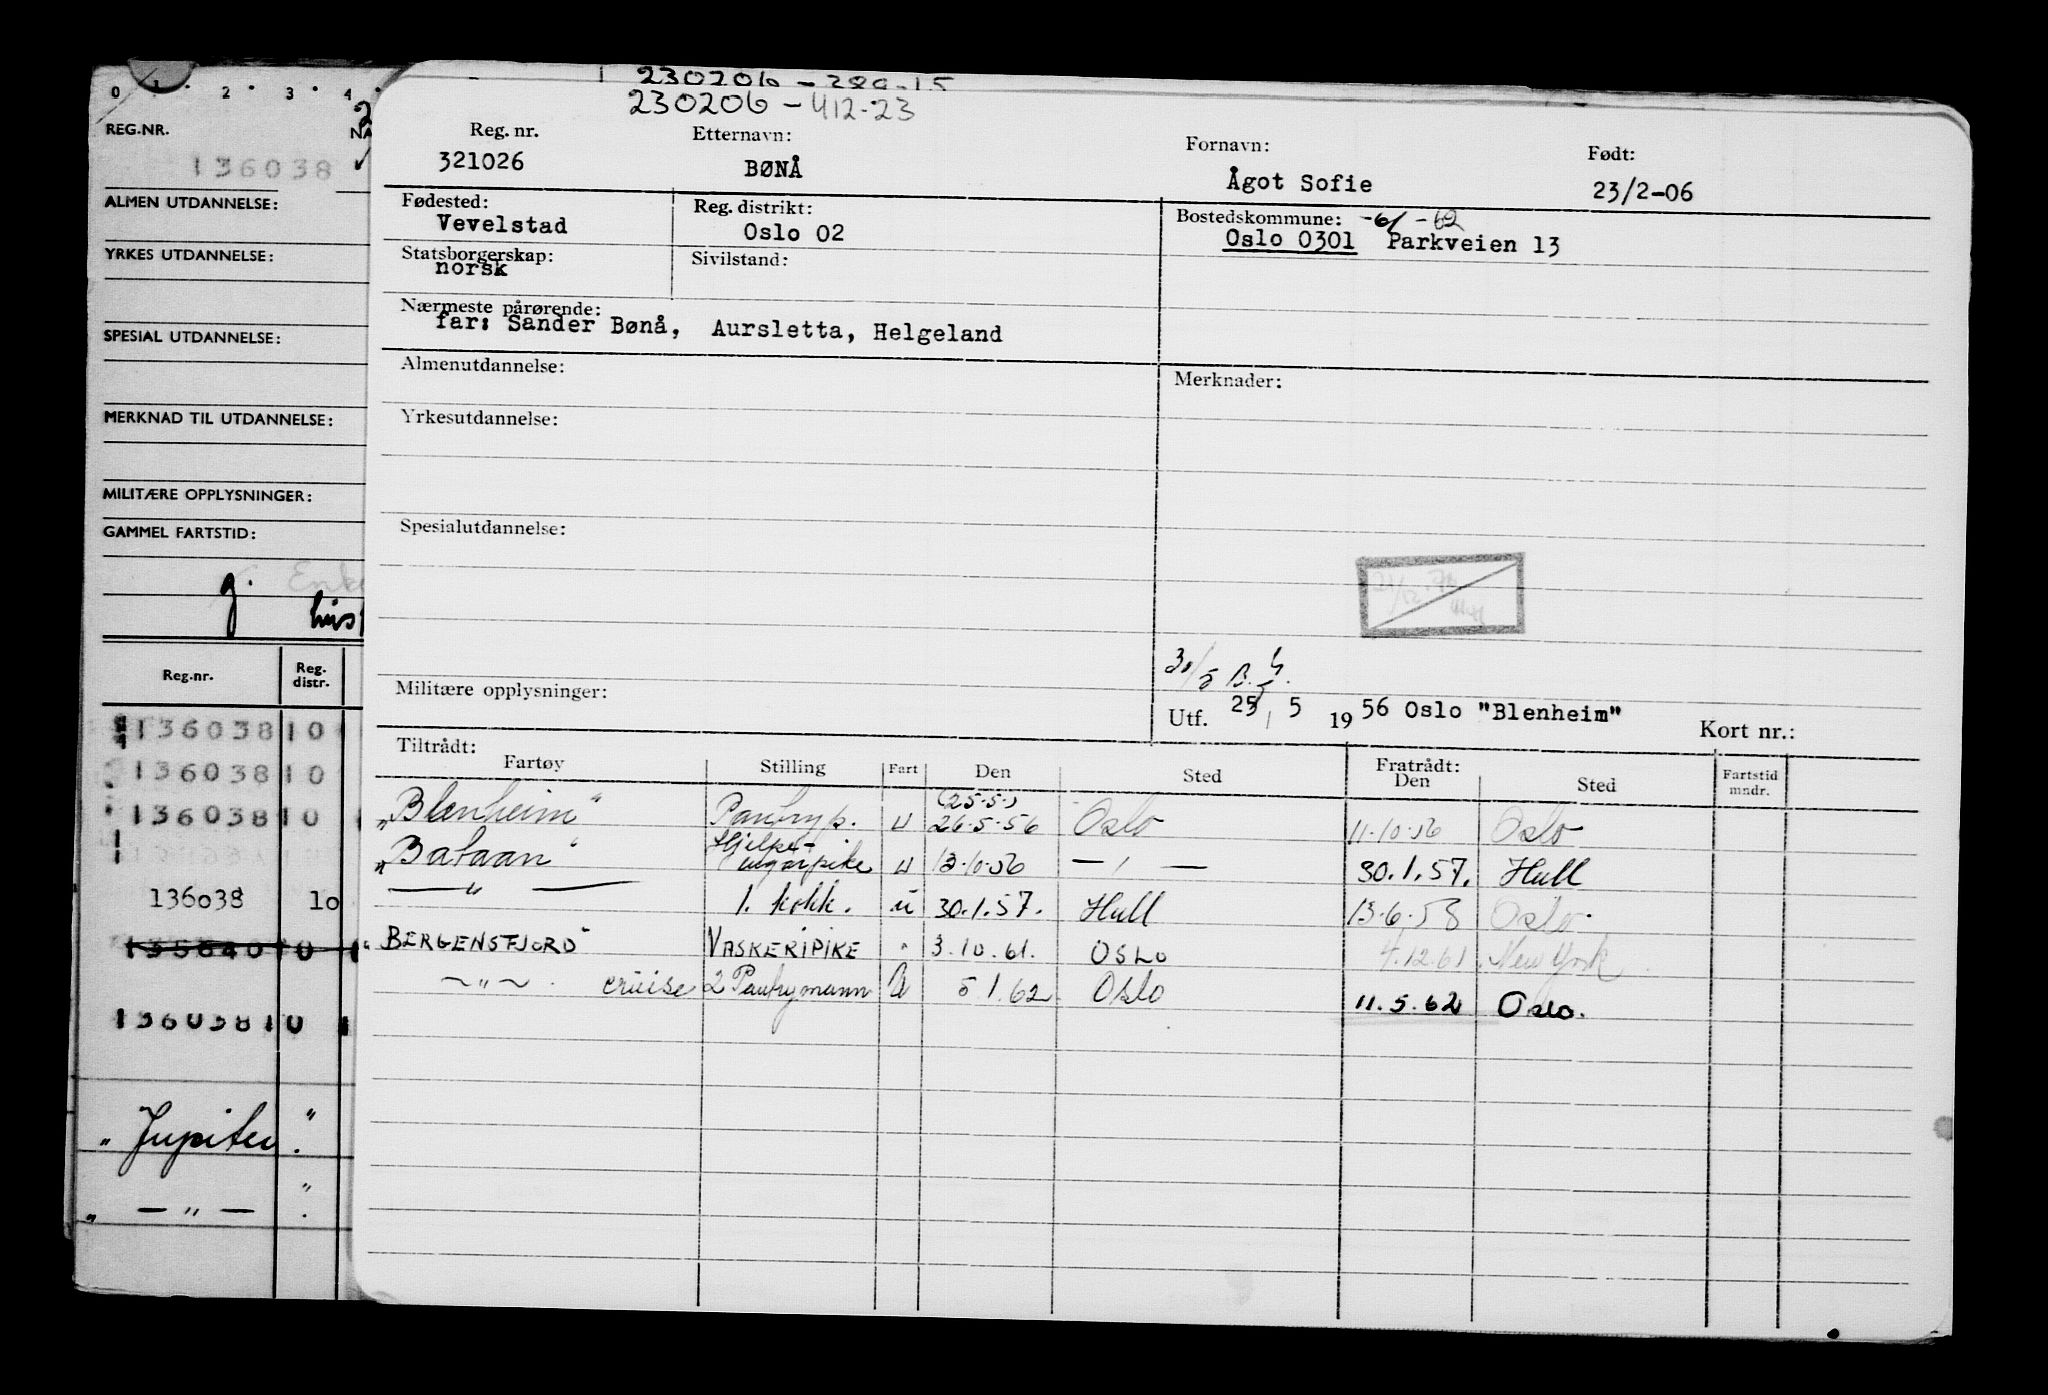 230206 - 412-23
0 1 2 3 4
REG.NR.
136038
ALMEN UTDANNELSE:
YRKES UTDANNELSE:
SPESIAL UTDANNELSE:
MERKNAD TIL UTDANNELSE:
MILITÆRE OPPLYSNINGER:
GAMMEL FARTSTID:
g.
Reg.nr. Reg. distr.
136038 10
136038 10
136038 10
136038 10
136038 10
"Jupiter"
" — " — "
Reg. nr. Etternavn: Fornavn: Født:
321026 BØNÅ Ågot Sofie 23/2-06
Fødested: Reg. distrikt: Bostedskommune: -61 -62
Vevelstad Oslo 02 Oslo 0301 Parkveien 13
Statsborgerskap: Sivilstand:
norsk
Nærmeste pårørende:
far: Sander Bønå, Aursletta, Helgeland
Almenutdannelse: Merknader:
Yrkesutdannelse:
Spesialutdannelse:
Militære opplysninger:
Utf. 25/5 1956 Oslo "Blenheim" Kort nr.:
Tiltrådt: Fratrådt:
Fartøy Stilling Fart Den Sted Den Sted Fartstid mndr.
(25.5.)
"Blenheim" Pantryp. u 26.5.56 Oslo 11.10.56 Oslo
"Bataan" Hjelpe- ugarpike u 13.10.56 — " — 30.1.57. Hull
— " — 1. kokk. u 30.1.57. Hull 13.6.58 Oslo.
"BERGENSFJORD" VASKERIPIKE " 3.10.61. OSLO 4.12.61. New York
~ " ~ . cruise 2 Pantrymann U 5 1.62 Oslo 11.5.62 Oslo.